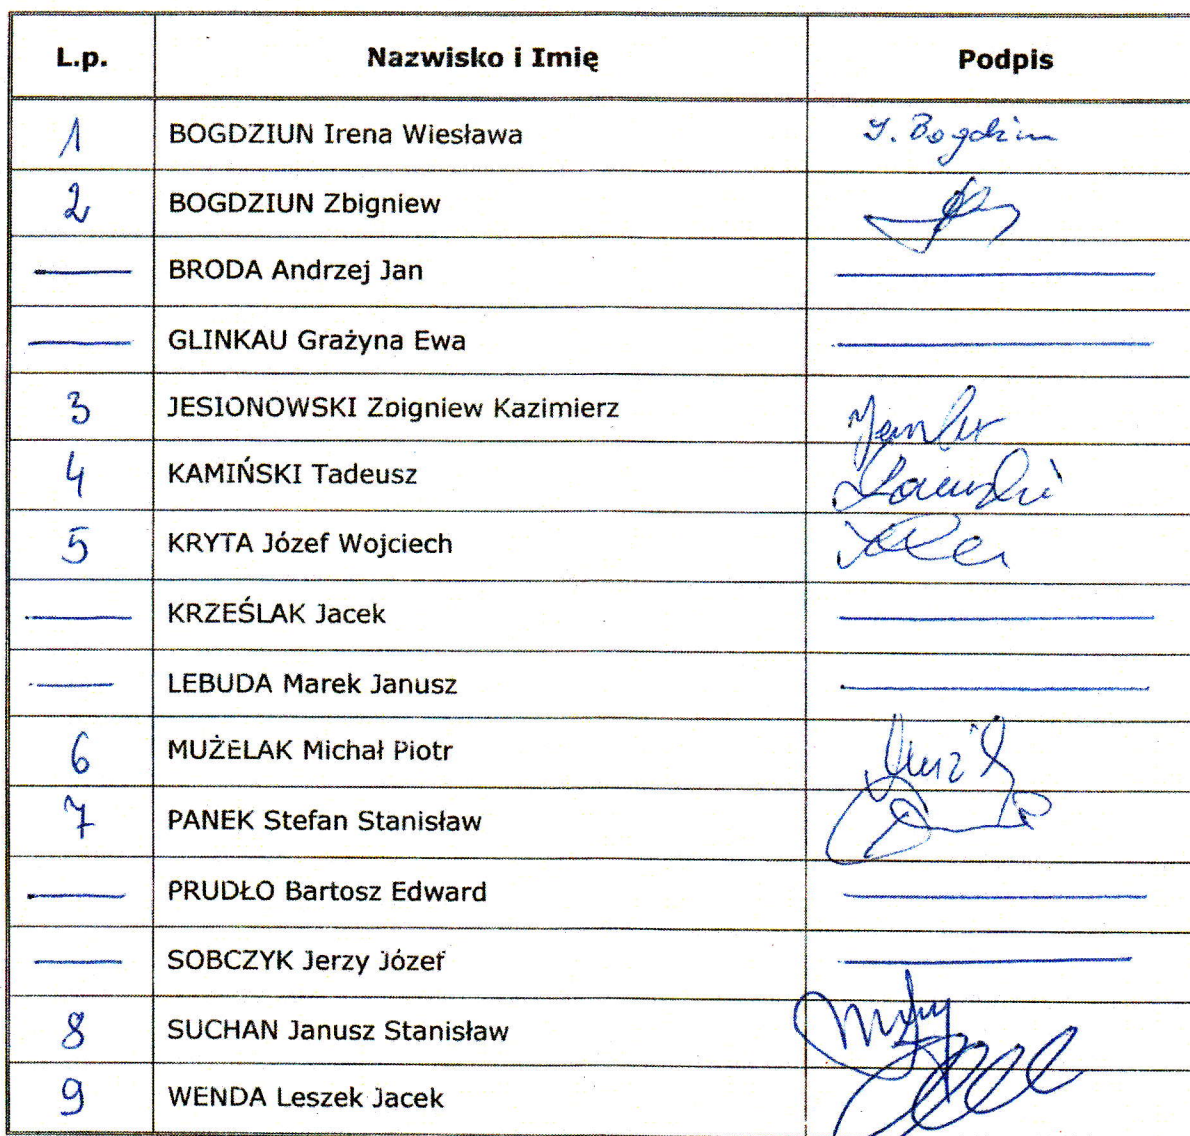 L.p. Nazwisko i Imię Podpis
1 BOGDZIUN Irena Wiesława
2 BOGDZIUN Zbigniew
BRODA Andrzej Jan
GLINKAU Grażyna Ewa
3 JESIONOWSKI Zbigniew Kazimierz
4 KAMIŃSKI Tadeusz
5 KRYTA Józef Wojciech
KRZEŚLAK Jacek
LEBUDA Marek Janusz
6 MUŻELAK Michał Piotr
7 PANEK Stefan Stanisław
PRUDŁO Bartosz Edward
SOBCZYK Jerzy Józef
8 SUCHAN Janusz Stanisław
9 WENDA Leszek Jacek